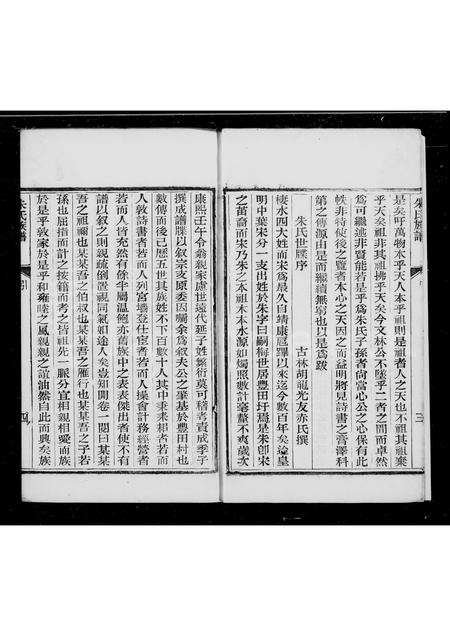 朱氏族譜
三
是矣吁萬物本乎天人本乎祖則是祖者人之天也不祖其祖棄
乎天矣祖非其祖拂乎天矣今文林公不墜乎二者之間而卓然
爲可繼述非賢能若是乎爲朱氏子孫者尚當心公之心保有此
帙非特使後之覽者本心之天因之而益明將見詩書之膏澤科
第之傳源由是而繼續無窮也以是爲跋
朱氏世牒序
古林胡龍光友赤氏撰
棲水四大姓而宋爲最久自靖康扈蹕以來迄今數百年矣逮皇
明中葉宋分一支出姓於朱字曰嗣梅世居豊田圩焉是朱卽宋
之苗裔而宋乃朱之本祖木本水源如燭照數計毫釐不爽歲次
康熙壬午令翁親家慮世遠代延子姓繁衍莫可稽考責成季子
撰成譜牒以叙宗支原委因囑余爲叙夫公之肇基於豊田村也
數傳而後已歷五世其族姓不下百數十人其中秉耒耜者若而
人敦詩書者若而人列宮墻登仕宦者若而人操會計務經營者
若而人皆充然有餘半屬温飽亦舊族中之表表傑出者使不有
譜以叙之則親疏倒置視同氣如途人矣豈知開卷一閱曰某某
吾之祖禰也某某吾之伯叔也某某吾之雁行也某某吾之子若
孫也屈指而計之按籍而考之皆祖先一脈分宜相親相愛而族
於是乎敦家於是乎和雍睦之風親親之誼油然自此而興矣族
朱氏族譜
引
四